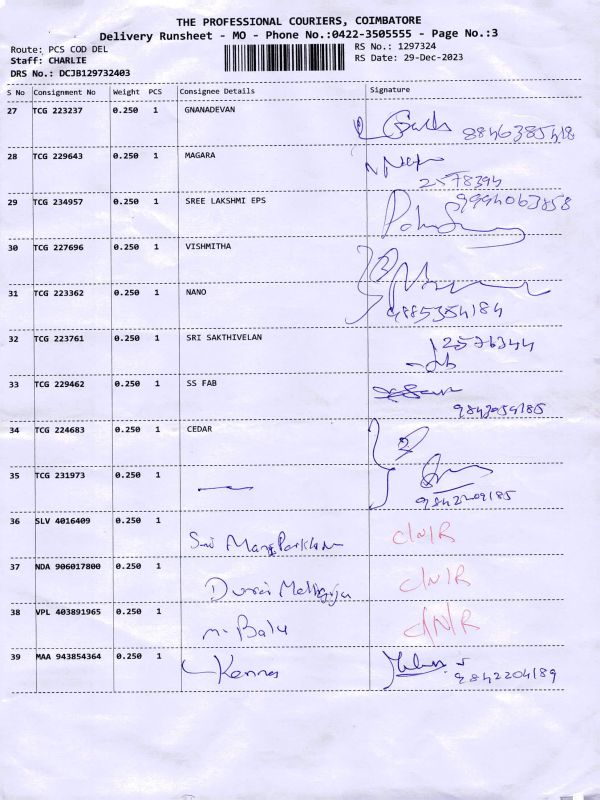 THE PROFESSIONAL COURIERS, COIMBATORE
Delivery Runsheet - MO - Phone No.:0422-3505555 - Page No.:3
Route: PCS COD DEL
RS No.: 1297324
Staff: CHARLIE
RS Date: 29-Dec-2023
DRS No.: DCJB129732403
S No Consignment No Weight PCS Consignee Details Signature
27 TCG 223237 0.250 1 GNANADEVAN
28 TCG 229643 0.250 1 MAGARA
29 TCG 234957 0.250 1 SREE LAKSHMI EPS 9994063858
30 TCG 227696 0.250 1 VISHMITHA
31 TCG 223362 0.250 1 NANO
9885354184
32 TCG 223761 0.250 1 SRI SAKTHIVELAN 12576344
33 TCG 229462 0.250 1 SS FAB
34 TCG 224683 0.250 1 CEDAR
35 TCG 231973 0.250 1
9842209185
36 SLV 4016409 0.250 1
C/N/R
37 NDA 906017800 0.250 1
Durai C/N/R
38 VPL 403891965 0.250 1
m. Balu C/N/R
39 MAA 943854364 0.250 1
9842204189